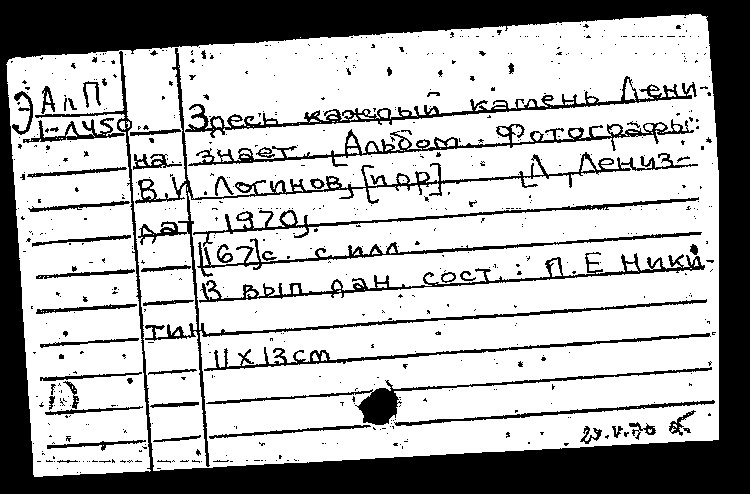 ЭАлП
1-Л450
Здесь каждый камень Лени-
на знает. [Альбом. Фотографы:
В.И. Логинов, [и др]. [Л., Лениз-
дат, 1970].
[167]с. с илл.
В вып. дан. сост.: П. Е Ники-
тин.
11 x 13 cm
29.V.70